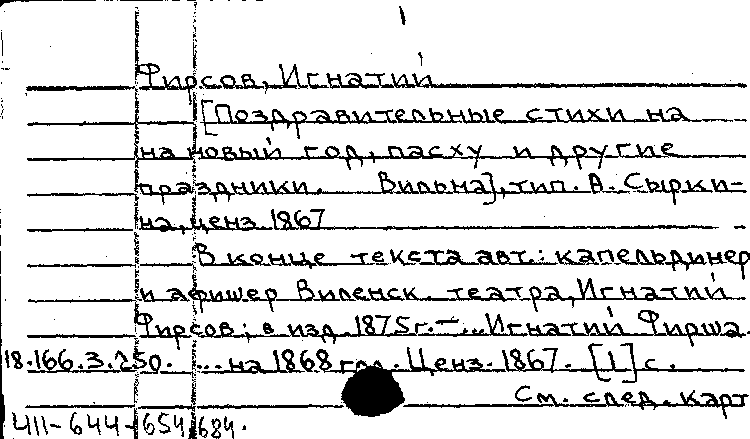 1
Фирсов, Игнатий
[Поздравительные стихи на
на новый год, пасху и другие
праздники. Вильна], тип. А. Сырки-
на, ценз. 1867
В конце текста авт.: капельдинер
и афишер Виленск. театра, Игнатий
Фирсов; в изд. 1875г. – ... Игнатий Фирша.
18.166.3.250. ... на 1868 год. Ценз. 1867. [1] с.
См. след. карт
411-644-654, 684.